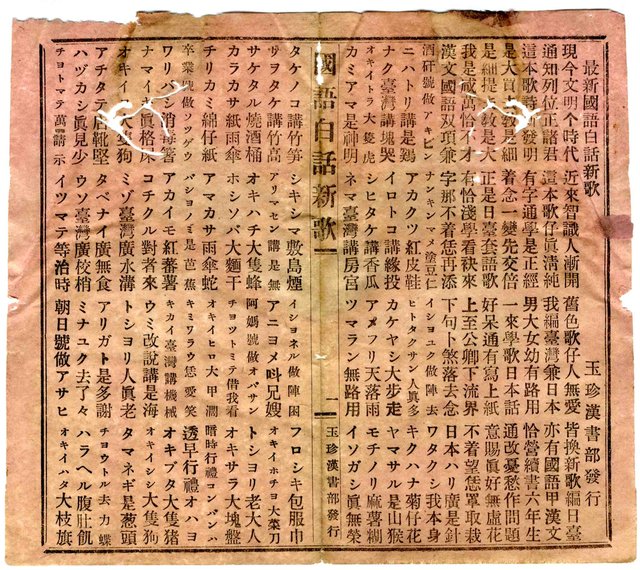 最新國語白話新歌　玉珍漢書部發行
現今文明个時代　近來智識人漸開　舊色歌仔人無愛　皆換新歌編日臺
通知列位正諸君　這本歌仔眞淸純　我編臺灣兼日本　亦有國語甲漢文
這本歌詩新發明　有字通學是正經　男大女幼有路用　恰營續書六年生
是大買敎是細　着念一變先交倍　一來學歌日本話　通改憂愁作問題
是細提敎是大　正是日臺套語歌　好呆通有寫上紙　意賜眞好無虛花
我是咸萬恰不才　有恰淺學看袂來　上至公卿下流界　不着望恁罩取裁
漢文國語双項兼　字那不着恁再添　下句卜煞落去念　日本ハリ廣是針
酒矸號做アキビン　ナンキンマメ塗豆仁　イシヨユク做陣去　ワタクシ我本身
ニハトリ講是鷄　アカクツ紅皮鞋　ヒトタクサン人眞多　キクハナ菊仔花
ナク臺灣講塊哭　イロトコ講緣投　カケヤシ大步走　ヤマサル是山猴
オキイトラ大隻虎　シヒタケ講香瓜　アメフリ天落雨　モチノリ麻薯糊
カミアマ是神明　ネマ臺灣講房宮　ツマラン無路用　イソガシ眞無榮
國語白話新歌　一　玉珍漢書部發行
タケコ講竹筍　シキシマ敷島煙　イシヨネル做陣困　フロシキ包服巾
サヲタケ講竹高　アリマセン講是無　アニヨメ叫兄嫂　オキイホチヨ大菜刀
サケタル燒酒桶　オキハチ大隻蜂　阿媽號做オバサン　トシヨリ老大人
カラカサ紙雨傘　ホシソバ大麵干　チヨツトミテ借我看　オキサラ大塊盤
チリカミ綿仔紙　アマカサ雨傘蛇　オキイヒロ大甲濶　暗時行禮コンバンハ
卒業號做ソツゲウ　バシヨノミ是芭蕉　キミワラウ恁愛笑　透早行禮オハヨ
ワリバシ消毒箸　アカイモ紅蕃薯　キカイ臺灣講機械　オキブタ大隻猪
ナマイ眞格床　コチクル對者來　ウミ改說講是海　オキイシシ大隻狗
オキイ隻狗　ミゾ臺灣廣水溝　トシヨリ人眞老　タマネギ是葱頭
アチタテ靴堅　タベナイ廣無食　アリガト是多謝　チヨウトル去力蝶
ハヅカシ眞見少　ウソ臺灣廣校梢　ミナユク去了々　ハラヘル腹肚飢
チヨトマテ萬請示　イツマテ等治時　朝日號做アサヒ　オキイハタ大枝旗